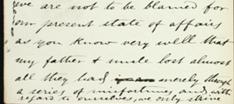 we are not to be blamed for
our present state of affairs
as you know very well that
my father & uncle lost almost
all they had merely through
a series of misfortunes, and with
regard to ourselves, we only strive